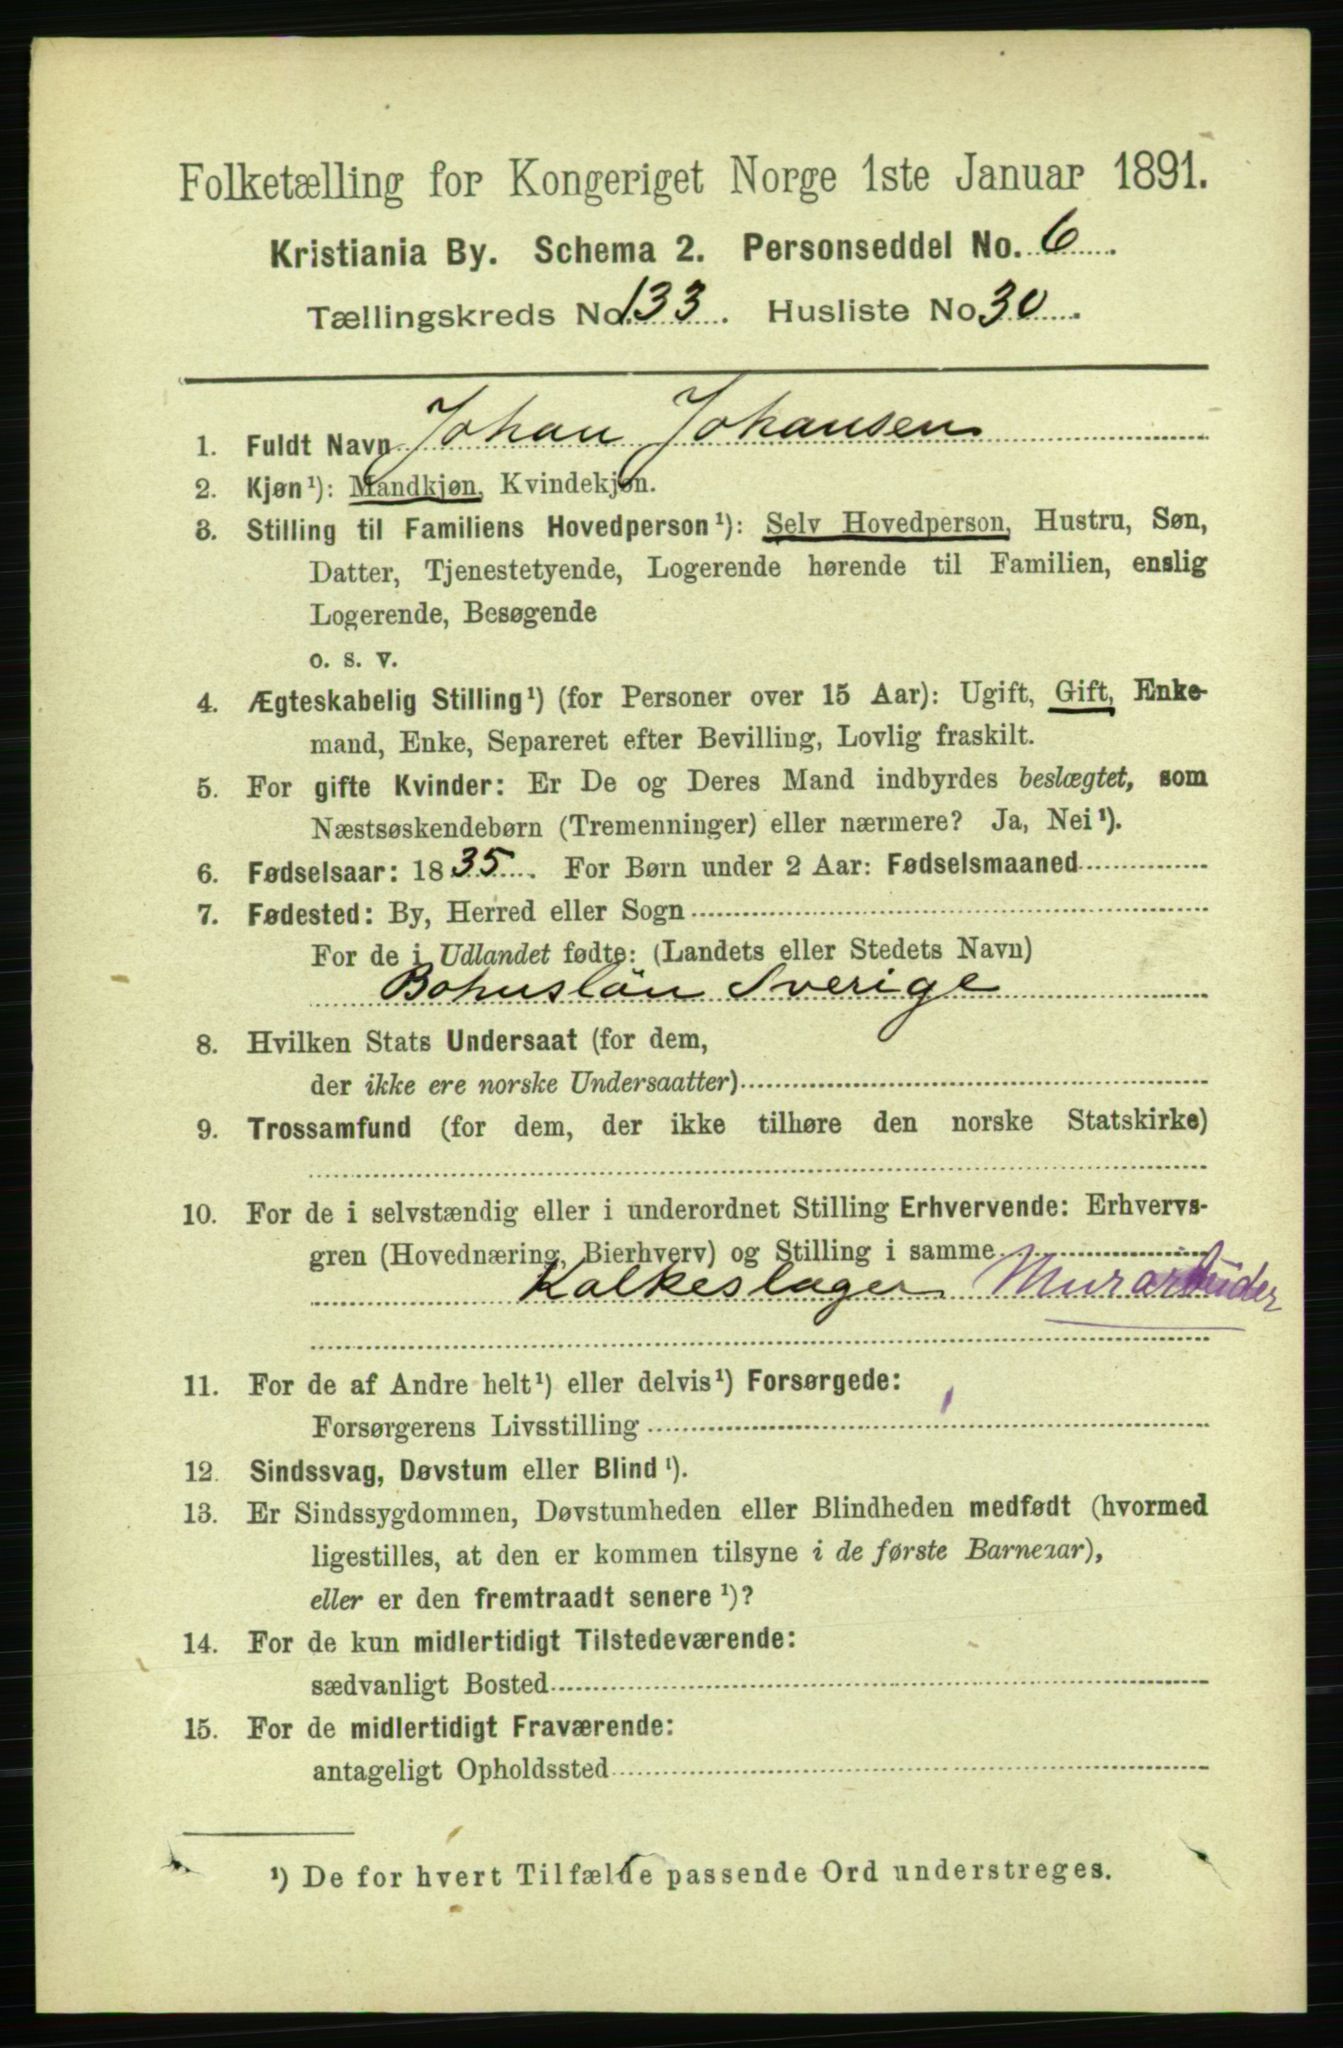 Folketælling for Kongeriget Norge 1ste Januar 1891.
Kristiania By. Schema 2. Personseddel No. 6.
Tællingskreds No. 133. Husliste No 30.
1. Fuldt Navn Johan Johansen
2. Kjøn¹): Mandkjøn, Kvindekjøn.
3. Stilling til Familiens Hovedperson¹): Selv Hovedperson, Hustru, Søn,
Datter, Tjenestetyende, Logerende hørende til Familien, enslig
Logerende, Besøgende
o. s. v.
4. Ægteskabelig Stilling¹) (for Personer over 15 Aar): Ugift, Gift, Enke-
mand, Enke, Separeret efter Bevilling, Lovlig fraskilt.
5. For gifte Kvinder: Er De og Deres Mand indbyrdes beslægtet, som
Næstsøskendebørn (Tremenninger) eller nærmere? Ja, Nei¹).
6. Fødselsaar: 1835. For Børn under 2 Aar: Fødselsmaaned
7. Fødested: By, Herred eller Sogn
For de i Udlandet fødte: (Landets eller Stedets Navn)
Bohuslän Sverige
8. Hvilken Stats Undersaat (for dem,
der ikke ere norske Undersaatter)
9. Trossamfund (for dem, der ikke tilhøre den norske Statskirke)
10. For de i selvstændig eller i underordnet Stilling Erhvervende: Erhvervs-
gren (Hovednæring, Bierhverv) og Stilling i samme
Kalkeslager Murarbeider
11. For de af Andre helt¹) eller delvis¹) Forsørgede:
Forsørgerens Livsstilling
12. Sindssvag, Døvstum eller Blind¹).
13. Er Sindssygdommen, Døvstumheden eller Blindheden medfødt (hvormed
ligestilles, at den er kommen tilsyne i de første Barneaar),
eller er den fremtraadt senere¹)?
14. For de kun midlertidigt Tilstedeværende:
sædvanligt Bosted
15. For de midlertidigt Fraværende:
antageligt Opholdssted
¹) De for hvert Tilfælde passende Ord understreges.